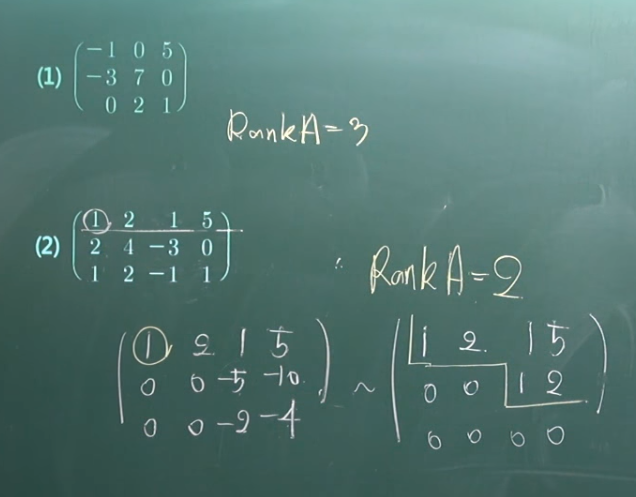 -1 0 5
(1) -3 7 0
0 2 1
Rank A = 3
1 2 1 5
(2) 2 4 -3 0
1 2 -1 1
∴ Rank A = 2
1 2 1 5
0 0 -5 -10
0 0 -2 -4
~
1 2 1 5
0 0 1 2
0 0 0 0